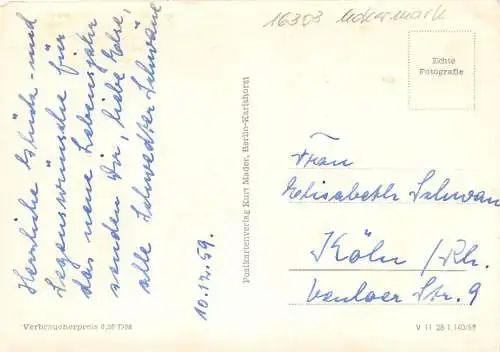 Herzliche Glück- und
Segenswünsche für
das neue Lebensjahr
senden Dir, liebe Else,
alle Schwedter Schwäne
10.12.59.
Postkartenverlag Kurt Mader, Berlin-Karlshorst
16303 Uckermark
Echte
Fotografie
Frau
Elisabeth Schwan
Köln / Rh.
Venloer Str. 9
Verbraucherpreis 0,20 DM
V 11 28 1 140/59